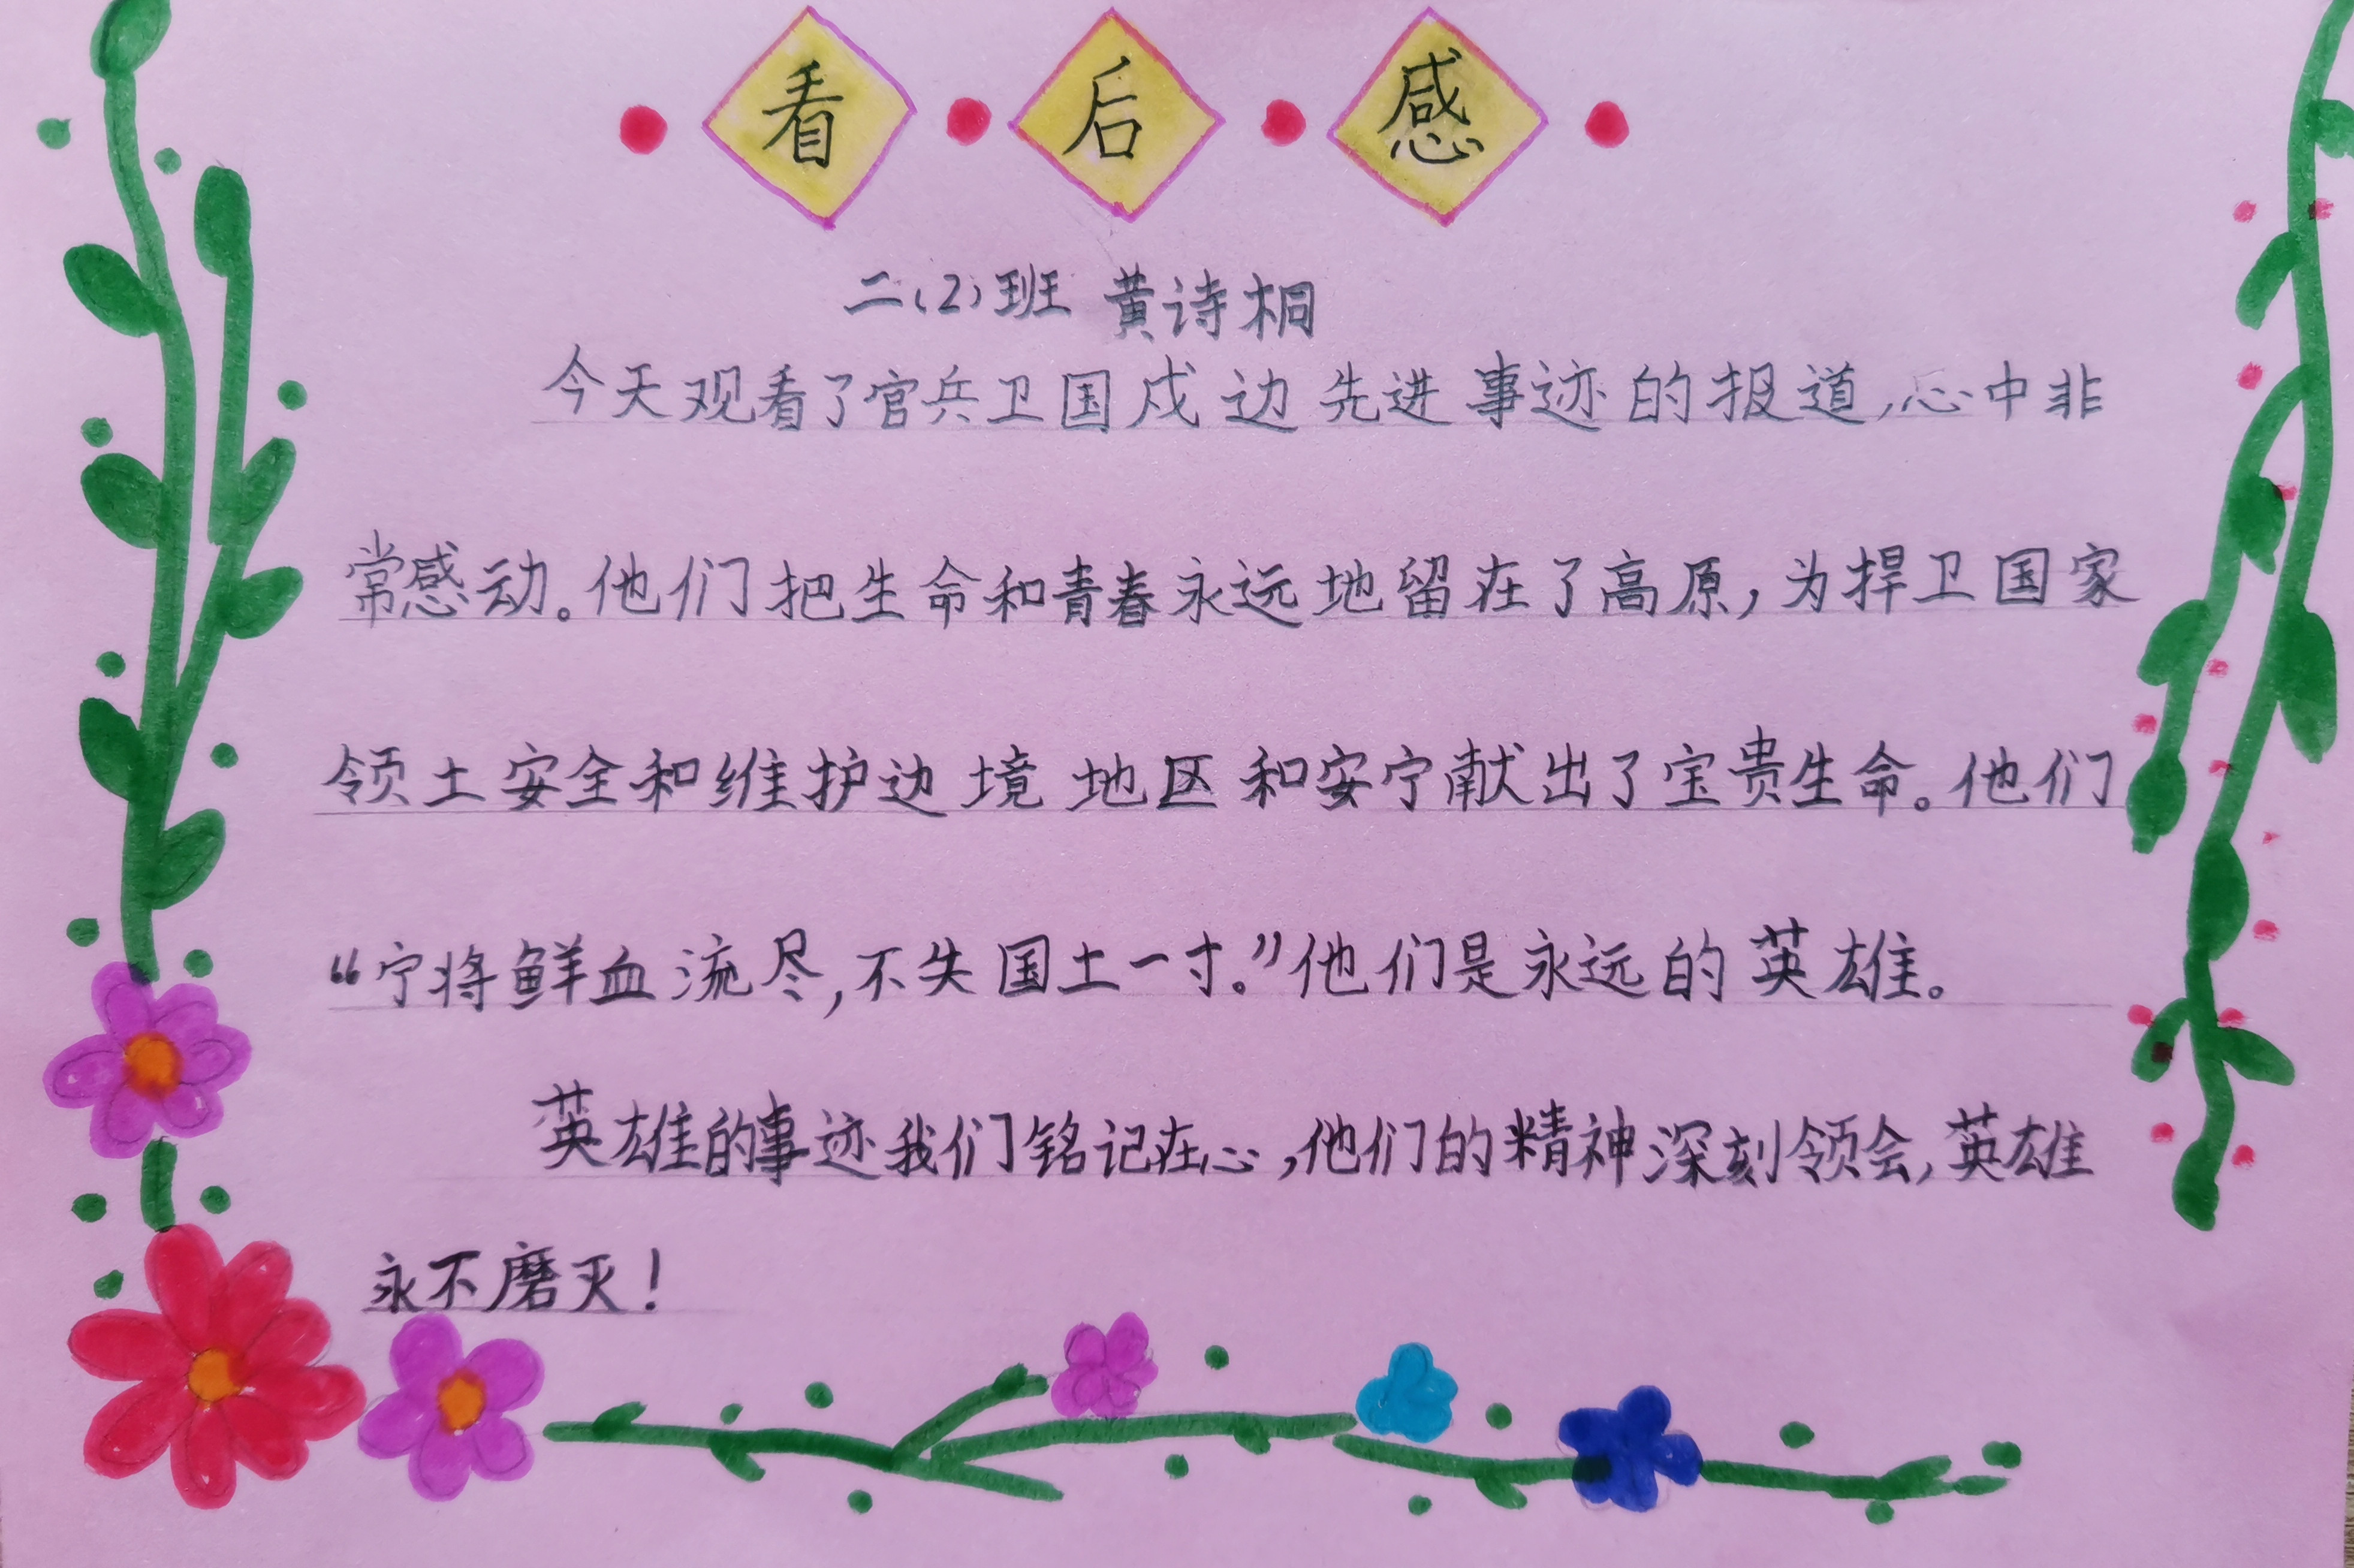 看后感
二(2)班 黄诗桐
今天观看了官兵卫国戍边先进事迹的报道,心中非
常感动。他们把生命和青春永远地留在了高原,为捍卫国家
领土安全和维护边境地区和安宁献出了宝贵生命。他们
“宁将鲜血流尽,不失国土一寸。”他们是永远的英雄。
英雄的事迹我们铭记在心,他们的精神深刻领会,英雄
永不磨灭!